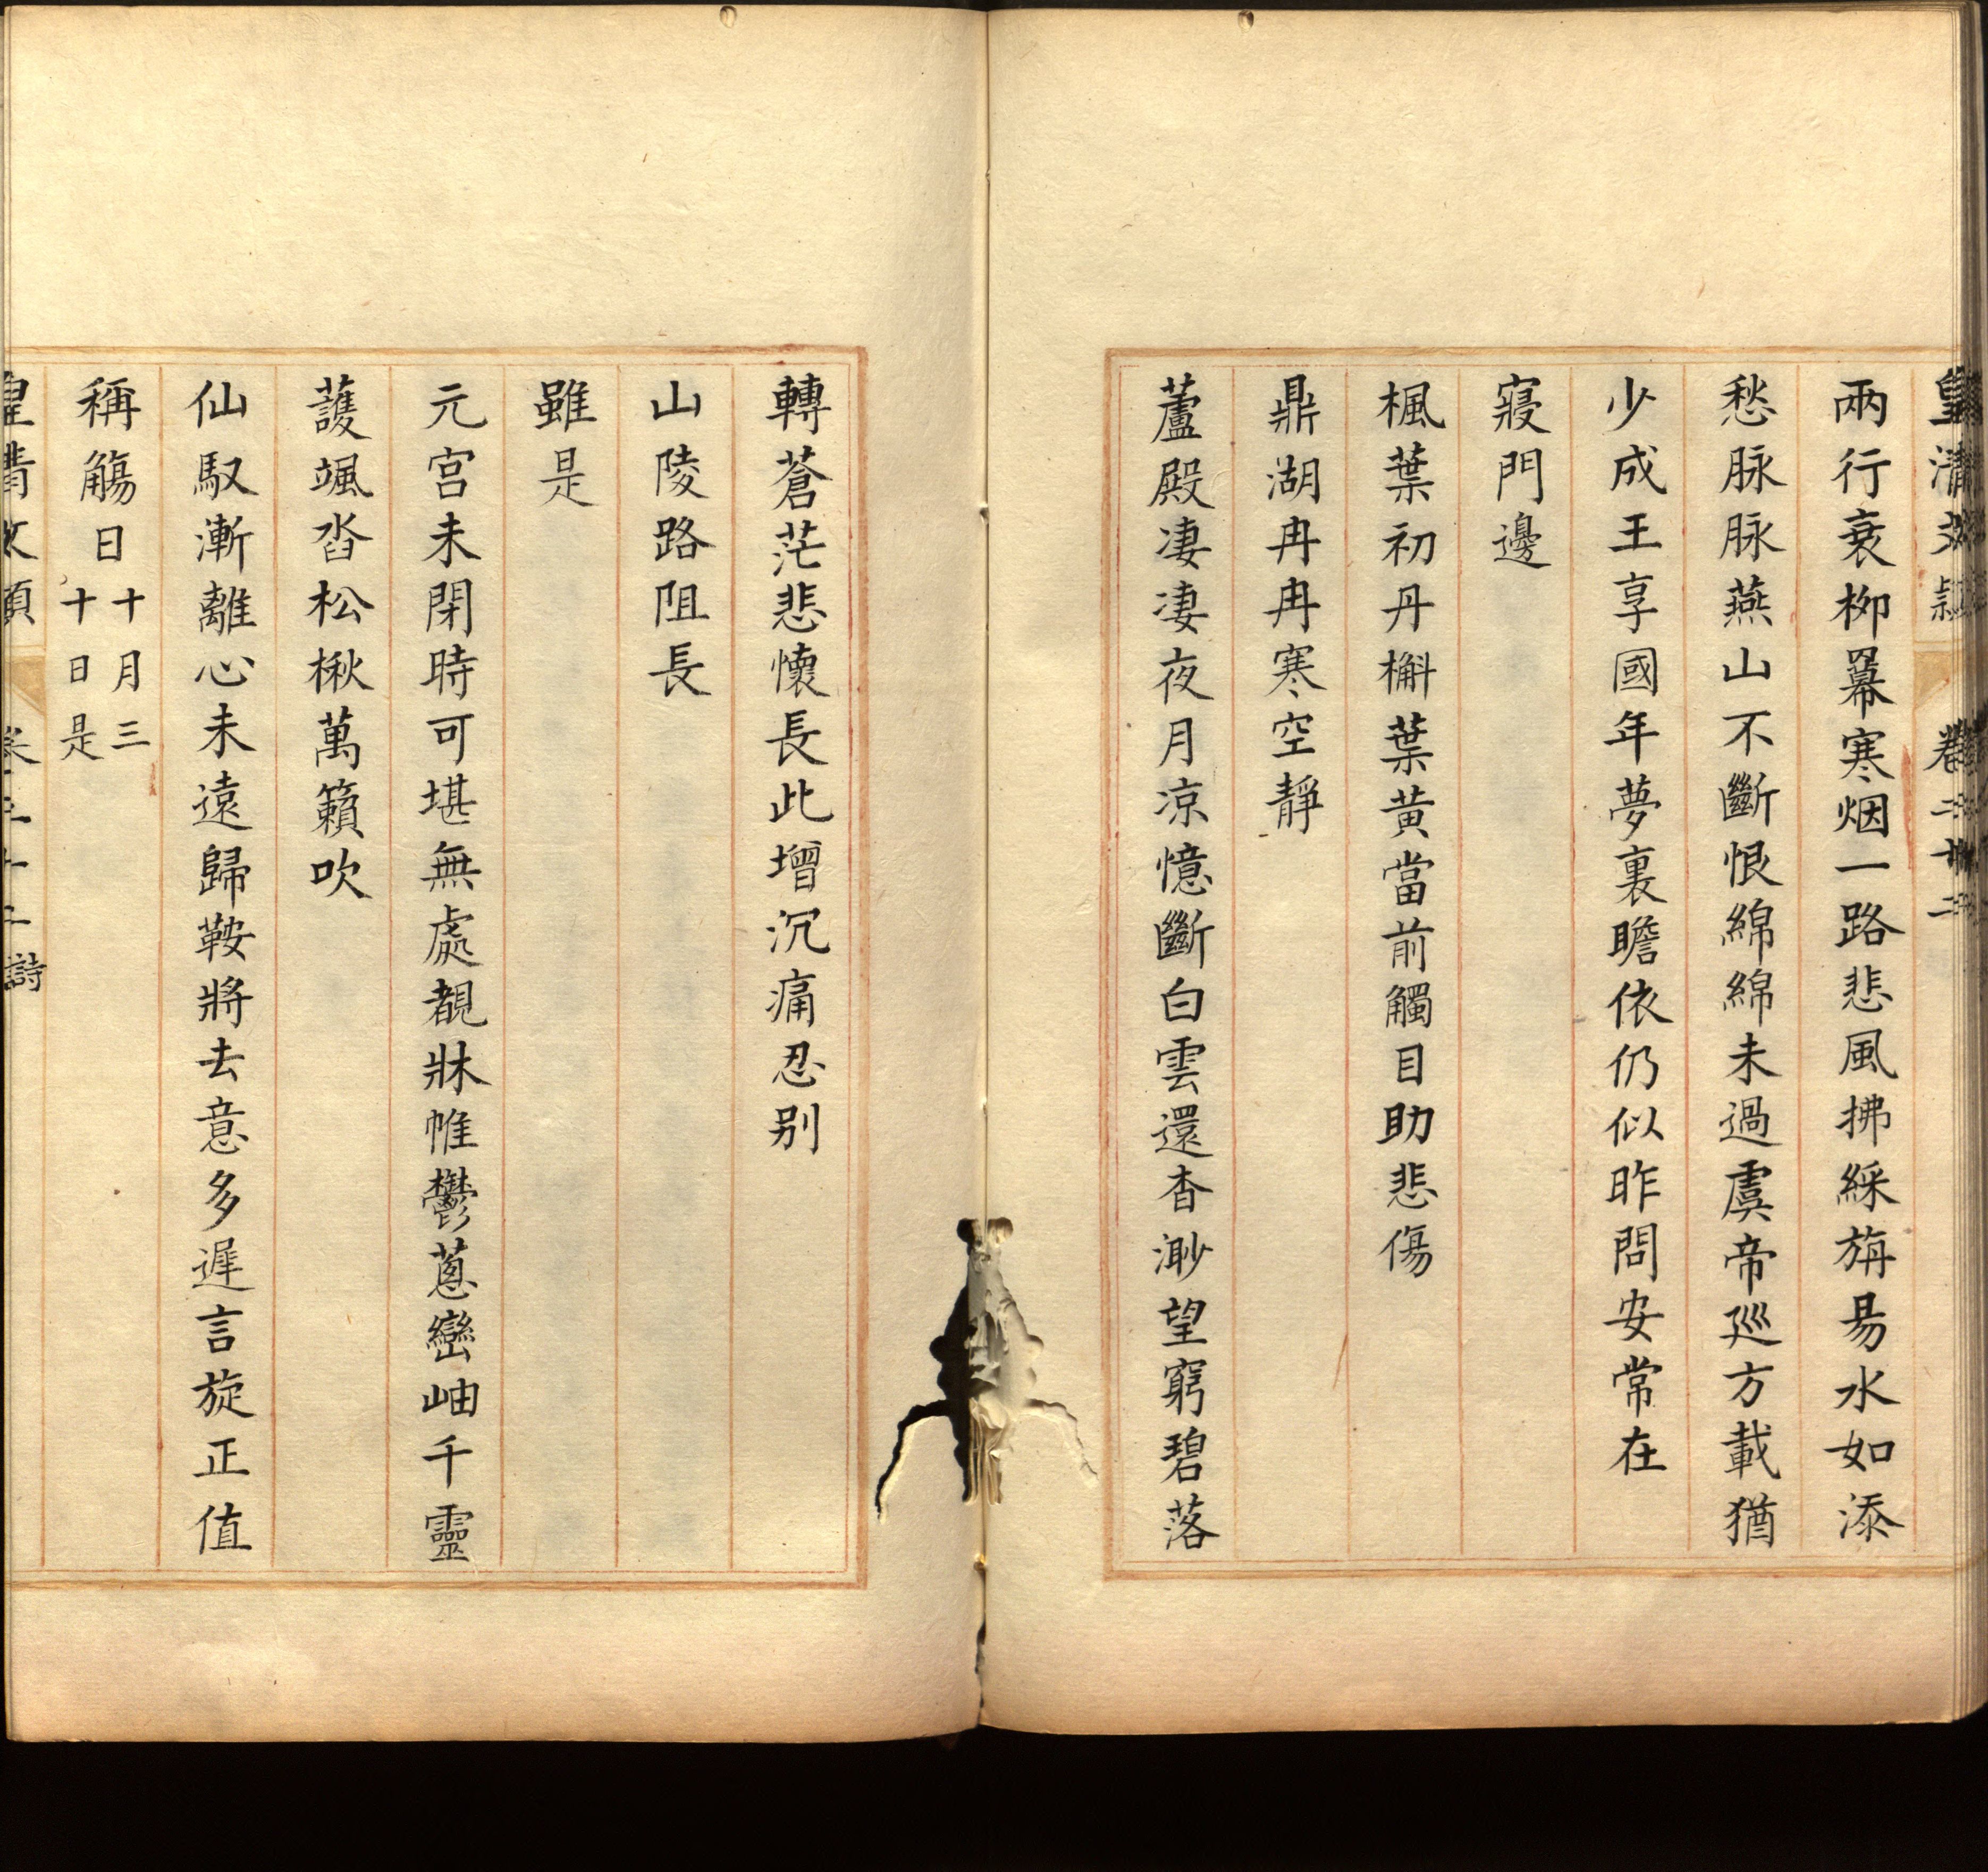 皇清文穎 卷二十二
兩行衰柳羃寒烟一路悲風拂綵旃易水如添
愁脉脉燕山不斷恨綿綿未過虞帝廵方載猶
少成王享國年夢裏瞻依仍似昨問安常在
寢門邊
楓葉初丹槲葉黃當前觸目助悲傷
鼎湖冉冉寒空靜
蘆殿凄凄夜月凉憶斷白雲還杳渺望窮碧落
轉蒼茫悲懷長此增沉痛忍别
山陵路阻長
雖是
元宫未閉時可堪無處覩牀帷鬱蔥巒岫千靈
護颯沓松楸萬籟吹
仙馭漸離心未遠歸鞍將去意多遲言旋正值
稱觴日十月三
十日是
皇清文穎 卷二十二 詩